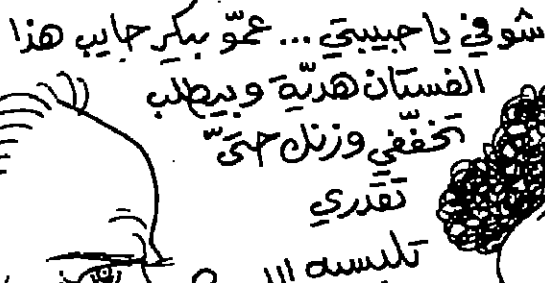 شوفي يا حبيبتي ... عمّو بكر جايب هذا
الفستان هديّة وبيطلب
تخفّفي وزنك حتىّ
تقدري
تلبسيه